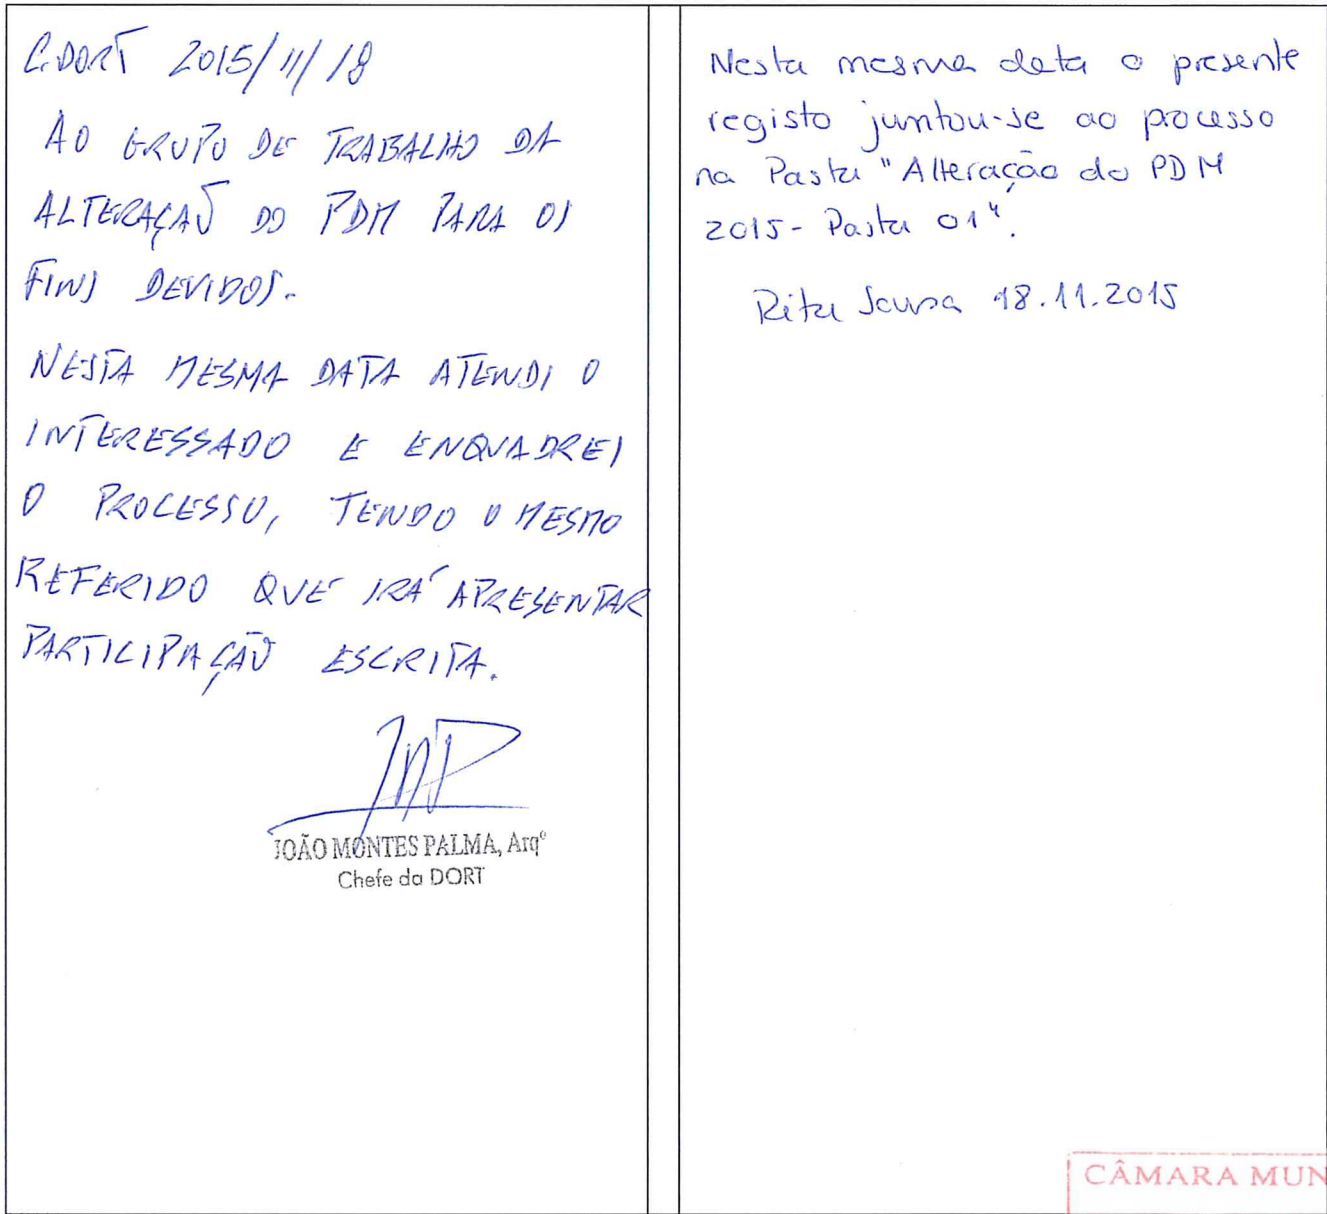 C.DORT 2015/11/18
AO GRUPO DE TRABALHO DA
ALTERAÇÃO DO PDM PARA OS
FINS DEVIDOS.
NESTA MESMA DATA ATENDI O
INTERESSADO E ENQUADREI
O PROCESSO, TENDO O MESMO
REFERIDO QUE IRÁ APRESENTAR
PARTICIPAÇÃO ESCRITA.
JOÃO MONTES PALMA, Arqº
Chefe da DORT
Nesta mesma data o presente
registo juntou-se ao processo
na Pasta "Alteração do PDM
2015 - Pasta 01".
Rita Sousa 18.11.2015
CÂMARA MUN